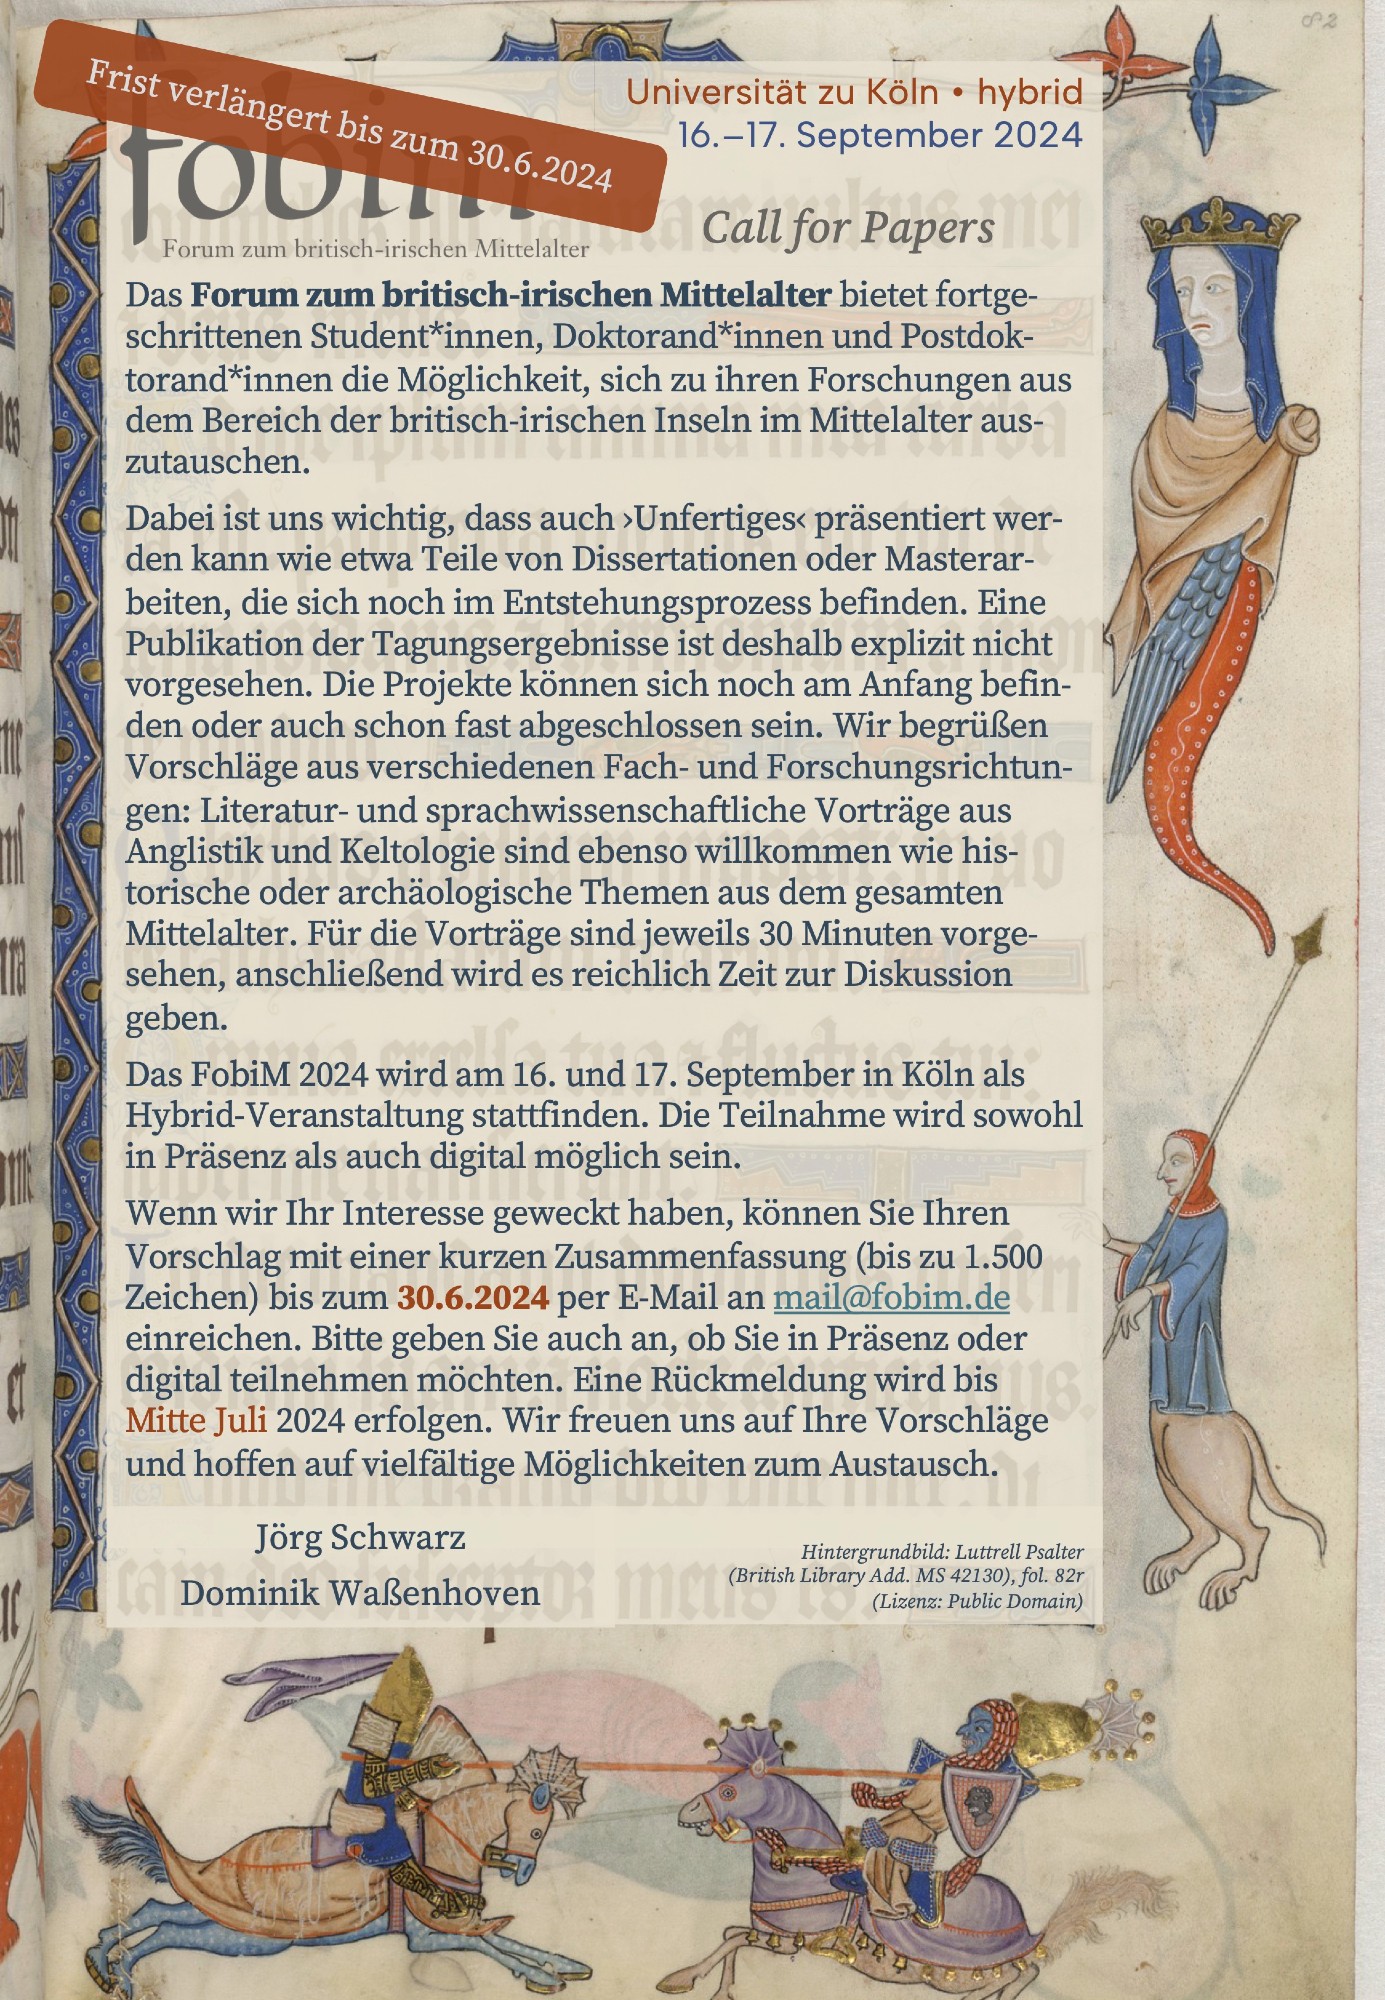 Frist verlängert bis zum 30.6.2024
fobim
Forum zum britisch-irischen Mittelalter
Universität zu Köln • hybrid
16.–17. September 2024
Call for Papers
Das Forum zum britisch-irischen Mittelalter bietet fortge-
schrittenen Student*innen, Doktorand*innen und Postdok-
torand*innen die Möglichkeit, sich zu ihren Forschungen aus
dem Bereich der britisch-irischen Inseln im Mittelalter aus-
zutauschen.
Dabei ist uns wichtig, dass auch ›Unfertiges‹ präsentiert wer-
den kann wie etwa Teile von Dissertationen oder Masterar-
beiten, die sich noch im Entstehungsprozess befinden. Eine
Publikation der Tagungsergebnisse ist deshalb explizit nicht
vorgesehen. Die Projekte können sich noch am Anfang befin-
den oder auch schon fast abgeschlossen sein. Wir begrüßen
Vorschläge aus verschiedenen Fach- und Forschungsrichtun-
gen: Literatur- und sprachwissenschaftliche Vorträge aus
Anglistik und Keltologie sind ebenso willkommen wie his-
torische oder archäologische Themen aus dem gesamten
Mittelalter. Für die Vorträge sind jeweils 30 Minuten vorge-
sehen, anschließend wird es reichlich Zeit zur Diskussion
geben.
Das FobiM 2024 wird am 16. und 17. September in Köln als
Hybrid-Veranstaltung stattfinden. Die Teilnahme wird sowohl
in Präsenz als auch digital möglich sein.
Wenn wir Ihr Interesse geweckt haben, können Sie Ihren
Vorschlag mit einer kurzen Zusammenfassung (bis zu 1.500
Zeichen) bis zum 30.6.2024 per E-Mail an mail@fobim.de
einreichen. Bitte geben Sie auch an, ob Sie in Präsenz oder
digital teilnehmen möchten. Eine Rückmeldung wird bis
Mitte Juli 2024 erfolgen. Wir freuen uns auf Ihre Vorschläge
und hoffen auf vielfältige Möglichkeiten zum Austausch.
Jörg Schwarz
Dominik Waßenhoven
Hintergrundbild: Luttrell Psalter
(British Library Add. MS 42130), fol. 82r
(Lizenz: Public Domain)
82